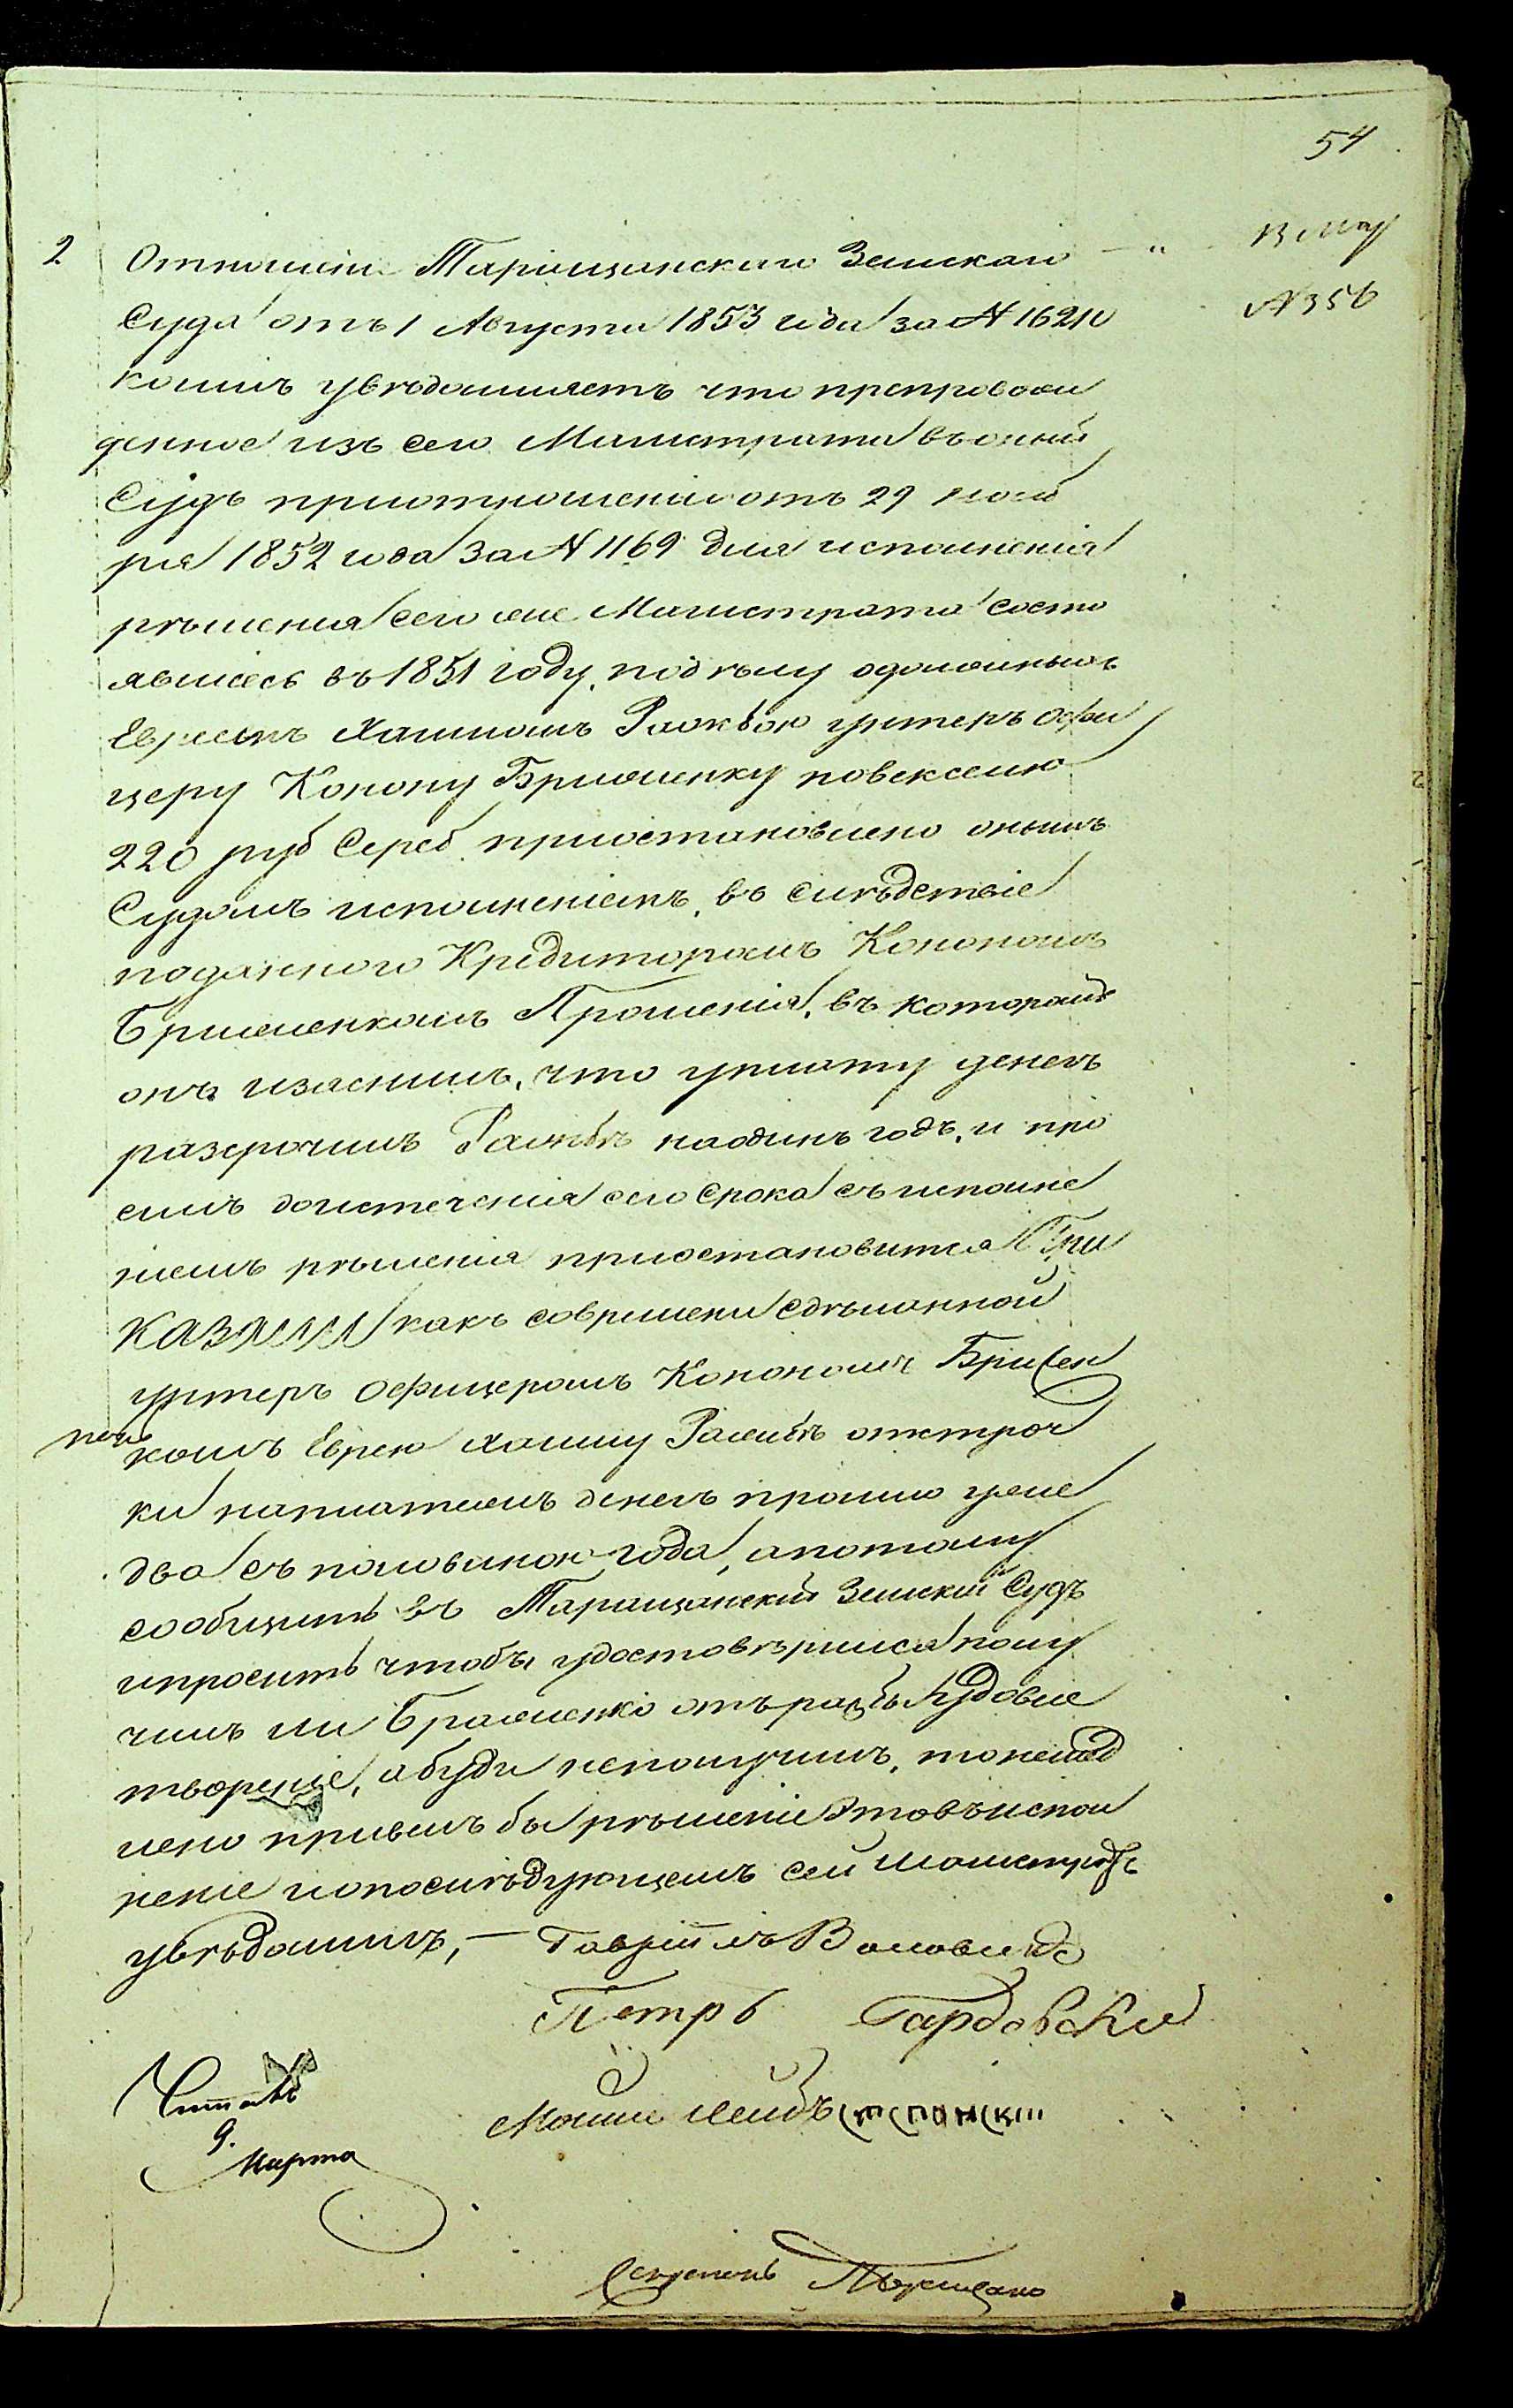 54
2 Отношеніе Таращанскаго Земскаго — " 13 мар
Суда отъ 1 Августа 1853 года за № 16210 № 356
коимъ увѣдомляетъ что препровож
денное изъ сего Магистрата въ оный
Судъ приотношеніи отъ 29 нояб
ря 1852 года за № 1169 для исполненія
рѣшенія сего же Магистрата состо
явшеесь въ 1851 году, подѣлу одолжныхъ
Евреемъ Хаимомъ унтеръ офи
церу Конону повекселю
220 руб Сереб. приостановлено онымъ
Судомъ исполненіемъ, въ слѣдствіе
поданного Кредиторомъ Конономъ
Прошенія, въ которомъ
онъ изяснилъ, что уплату денегъ
разсрочилъ наодинъ годъ, и про
силъ доистеченія сего срока съ исполне
ніемъ рѣшенія приостановится При
КАЗАЛИ какъ современи сдѣланной
унтеръ офицеромъ Конономъ
комъ Еврею Хаиму отстроч
ки платежемъ денегъ прошло уже
два съ половиною года, апотому
сообщить въ Таращанскій Земскій Судъ
ипросить чтобы удостовѣрился полу
чилъ ли отъ удовле
твореніе, абуди неполучилъ, то немед
лено привелъ бы рѣшеніе это въ испол
неніе и опослѣдующемъ сей магистратъ
увѣдомилъ, — Гавріилъ
Петръ Гардовскій
Читалъ Мошко Лейбъ
9.
Марта
Секретарь